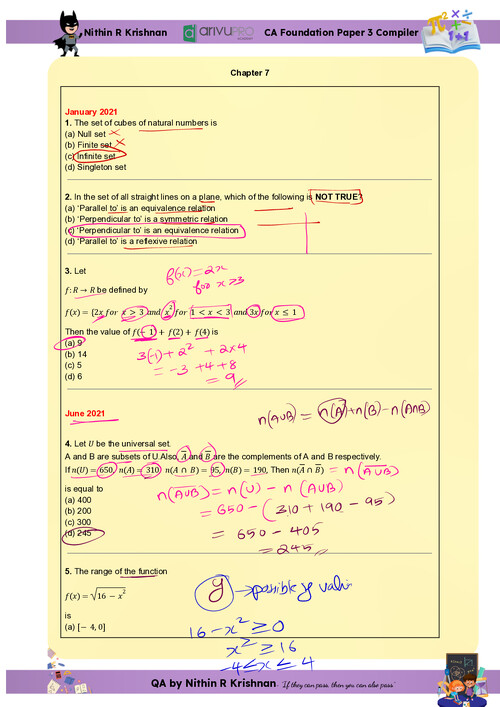 Nithin R Krishnan
arivuPRO
CA Foundation Paper 3 Compiler
Chapter 7
January 2021
1. The set of cubes of natural numbers is
(a) Null set ×
(b) Finite set ×
(c) Infinite set
(d) Singleton set
2. In the set of all straight lines on a plane, which of the following is NOT TRUE?
(a) 'Parallel to' is an equivalence relation
(b) 'Perpendicular to' is a symmetric relation
(c) 'Perpendicular to' is an equivalence relation
(d) 'Parallel to' is a reflexive relation
3. Let
f(x) = 2x
for x ≥ 3
f: R → R be defined by
f(x) = {2x for x > 3 and x² for 1 < x < 3 and 3x for x ≤ 1
Then the value of f(− 1) + f(2) + f(4) is
(a) 9
(b) 14
(c) 5
(d) 6
3(-1) + 2² + 2×4
= -3 +4 +8
= 9
June 2021
n(A∪B) = n(A)+n(B)-n(A∩B)
4. Let U be the universal set.
A and B are subsets of U. Also, A̅ and B̅ are the complements of A and B respectively.
If n(U) = 650, n(A) = 310 n(A ∩ B) = 95, n(B) = 190, Then n(A̅ ∩ B̅) = n(A̅∪̅B̅)
is equal to
(a) 400
(b) 200
(c) 300
(d) 245
n(A̅∪̅B̅) = n(U) - n(A∪B)
= 650 - (310 + 190 - 95)
= 650 - 405
= 245
5. The range of the function
f(x) = √16 − x²
is
(a) [− 4, 0]
y → possible y value
16 - x² ≥ 0
x² ≥ 16
-4 ≤ x ≤ 4
QA by Nithin R Krishnan
"If they can pass, then you can also pass"